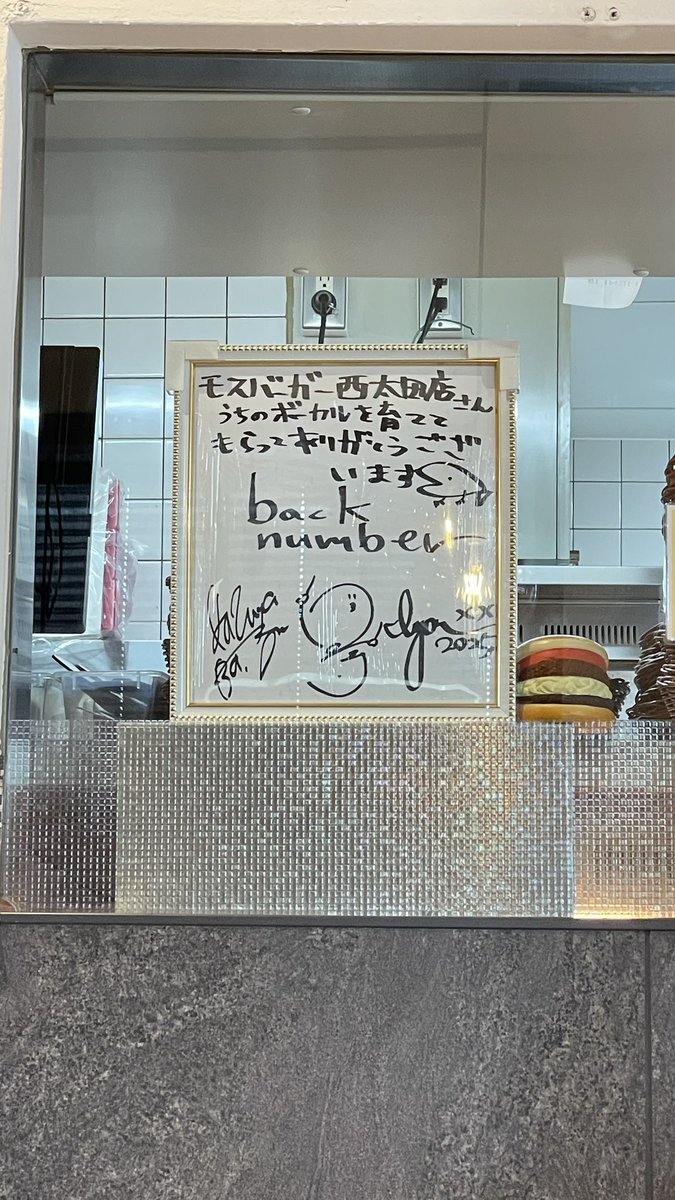 モスバーガー西太田店さん
うちのボーカルを育てて
もらってありがとうござ
います
back
number
2025